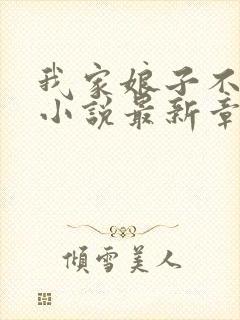 我家娘子不
小説最新章
傾雪美人